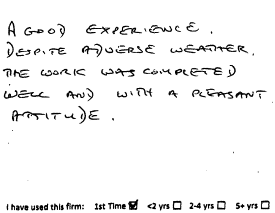 A GOOD EXPERIENCE.
DESPITE ADVERSE WEATHER,
THE WORK WAS COMPLETED
WELL AND WITH A PLEASANT
ATTITUDE.
I have used this firm: 1st Time ☑ <2 yrs ☐ 2-4 yrs ☐ 5+ yrs ☐